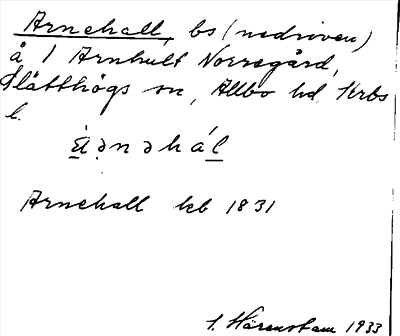 Arnehall, bs (nedriven)
å 1 Arnhult Norregård,
Slätthögs sn, Allbo hd, Krbs
l.
ànəhál
Arnehall kb 1831
S. Härenstam 1933